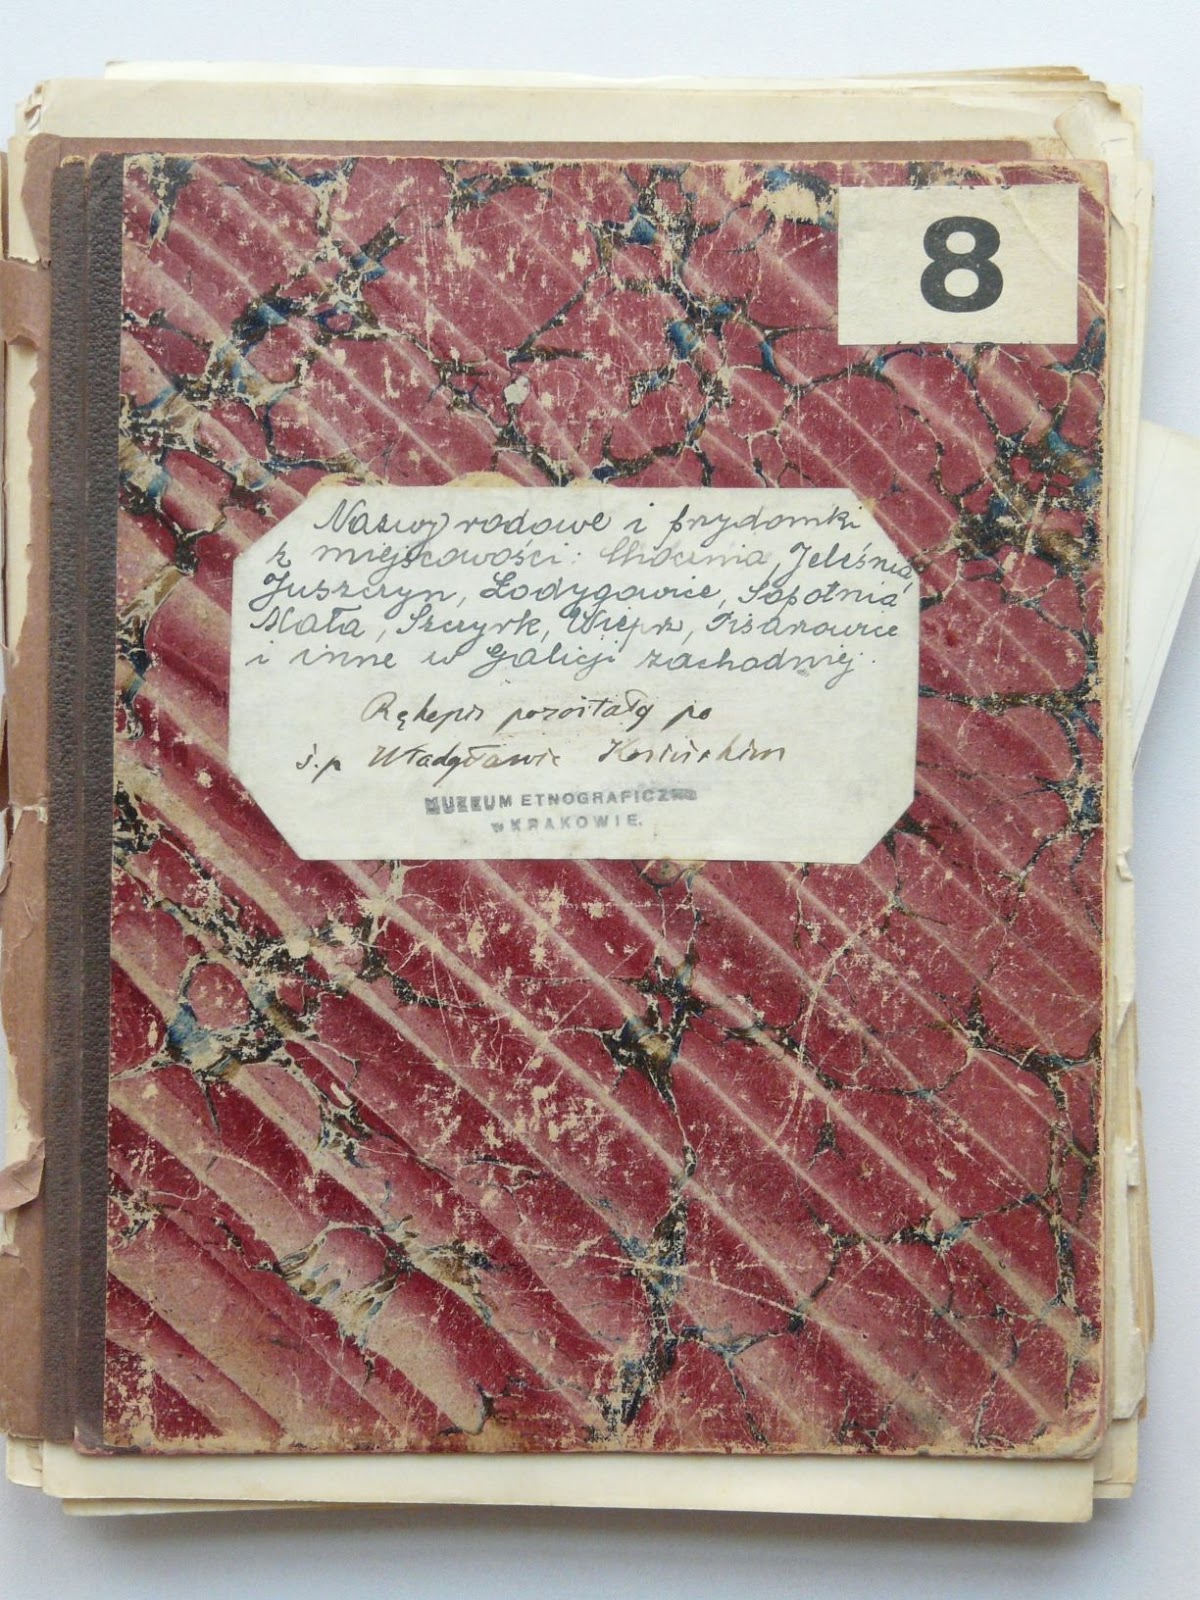 8
Nazwy rodowe i przydomki
z miejscowości: Chocznia, Jeleśnia,
Juszczyn, Łodygowice, Sopotnia
Mała, Szczyrk, Wieprz, Pisarzowice
i inne w Galicji zachodniej.
Rękopis pozostały po
ś.p Władysławie Kosińskim
MUZEUM ETNOGRAFICZNE
w KRAKOWIE.